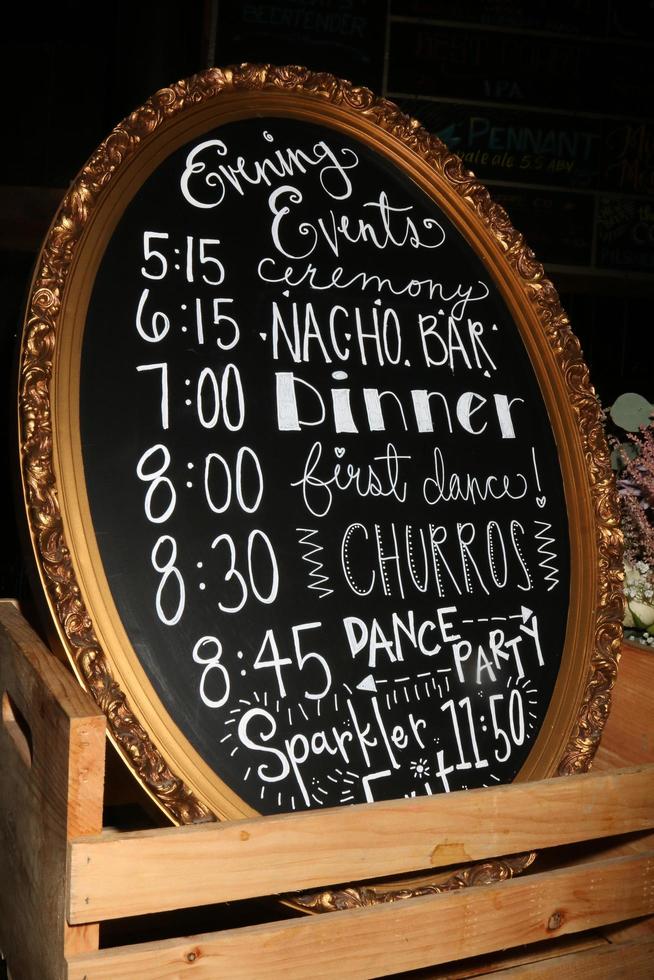 Evening
Events
5:15 ceremony
6:15 NACHO BAR
7:00 Dinner
8:00 first dance!
8:30 CHURROS
8:45 DANCE
PARTY
Sparkler 11:50
Exit
BEERTENDER
IPA
PENNANT
ale 5.5 ABV